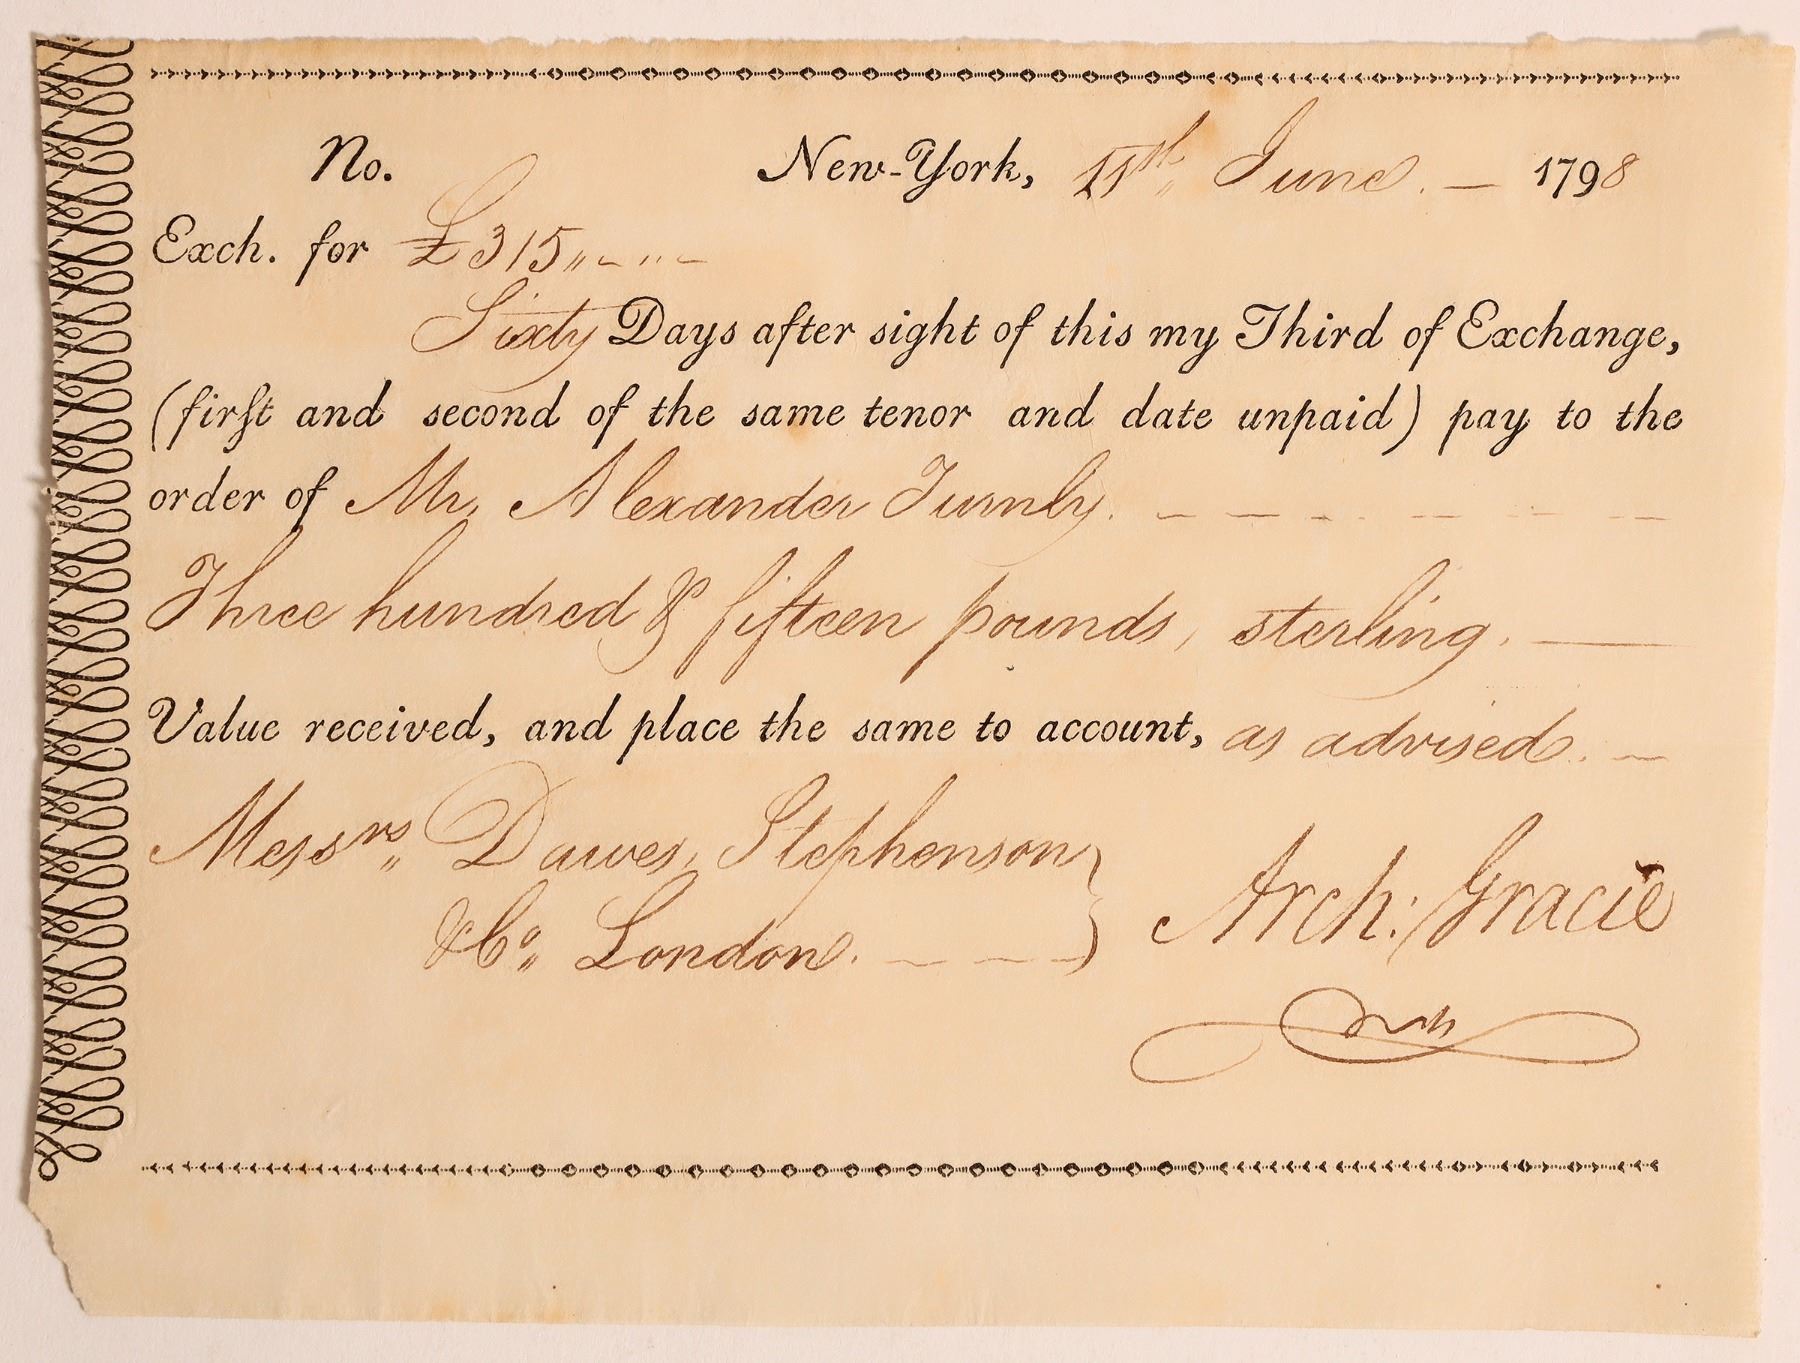 No. New-York, 11th June. — 1798
Exch. for £315,,-,,-
Sixty Days after sight of this my Third of Exchange,
(first and second of the same tenor and date unpaid) pay to the
order of Mr. Alexander Turnly.
Three hundred & fifteen pounds, sterling. —
Value received, and place the same to account, as advised. —
Messrs,, Dawes, Stephenson
&Co,, London.
Arch: Gracie